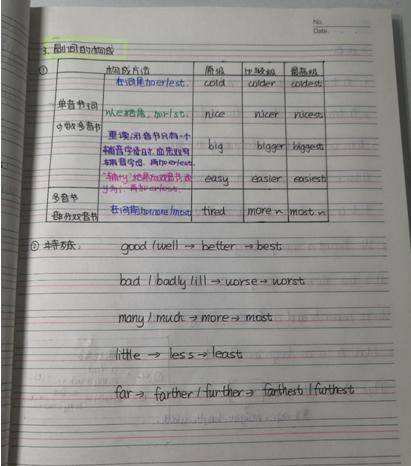 No.
Date.
3. 副词的构成
① 构成方法 原级 比较级 最高级
单音节词
少数多音节
在词尾加er/est. cold colder coldest
以e结尾，加r/st. nice nicer nicest
重读闭音节只有一个
辅音字母时，应先双写
辅音字母，再加er/est. big bigger biggest
"辅+y"结尾双音节，改
y为i，再加er/est. easy easier easiest
多音节
部分双音节 在词前加more/most tired more ~ most ~
② 特殊：good/well → better → best
bad/badly/ill → worse → worst
many/much → more → most
little → less → least
far → farther/further → farthest/furthest